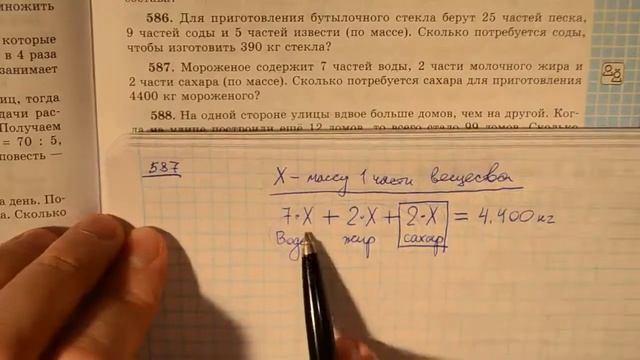 которые
в 4 раза
занимает
лиц, тогда
дачи рас-
Получаем
= 70 : 5,
повесть —
на день. По-
а. Сколько
586. Для приготовления бутылочного стекла берут 25 частей песка,
9 частей соды и 5 частей извести (по массе). Сколько потребуется соды,
чтобы изготовить 390 кг стекла?
587. Мороженое содержит 7 частей воды, 2 части молочного жира и
2 части сахара (по массе). Сколько потребуется сахара для приготовления
4400 кг мороженого?
588. На одной стороне улицы вдвое больше домов, чем на другой. Ког-
да на улице построили ещё 12 домов, то всего стало 99 домов. Сколько
587
X - массу 1 части вещества
7·X + 2·X + 2·X = 4.400 кг
Вода жир сахар